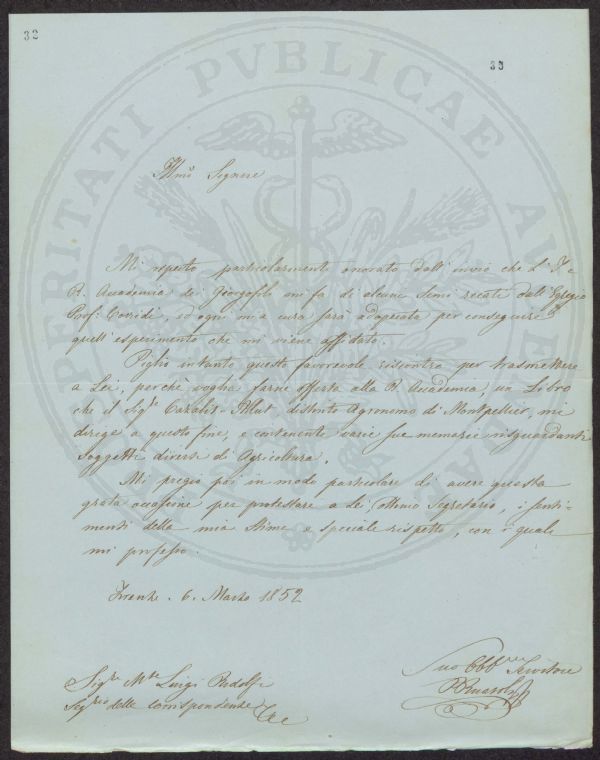 32
33
PROSPERITATI PVBLICAE AVGENDAE
Illmo Signore
Mi reputo particolarmente onorato dall' invio che l' I. e
R. Accademia dei Georgofili mi fa di alcuni Semi recati dall' Egregio
Prof: Corridi, ed ogni mia cura sarà adoperata per conseguire
quell' esperimento che mi viene affidato.
Piglio intanto questo favorevole riscontro per trasmettere
a Lei, perchè voglia farne offerta alla R. Accademia, un Libro
che il Sigr. Cazalis-Allut, distinto Agronomo di Montpellier, mi
dirige a questo fine, e contenente varie sue memorie risguardanti
Soggetti diversi di Agricoltura.
Mi pregio poi in modo particolare di avere questa
grata occasione per protestare a Lei Illmo Segretario, i senti-
menti della mia Stima e speciale rispetto, con i quali
mi professo.
Firenze. 6. Marzo 1852
Suo Obbmo Servitore
Sigre Mse Luigi Ridolfi
Segrio delle Corrispondenze